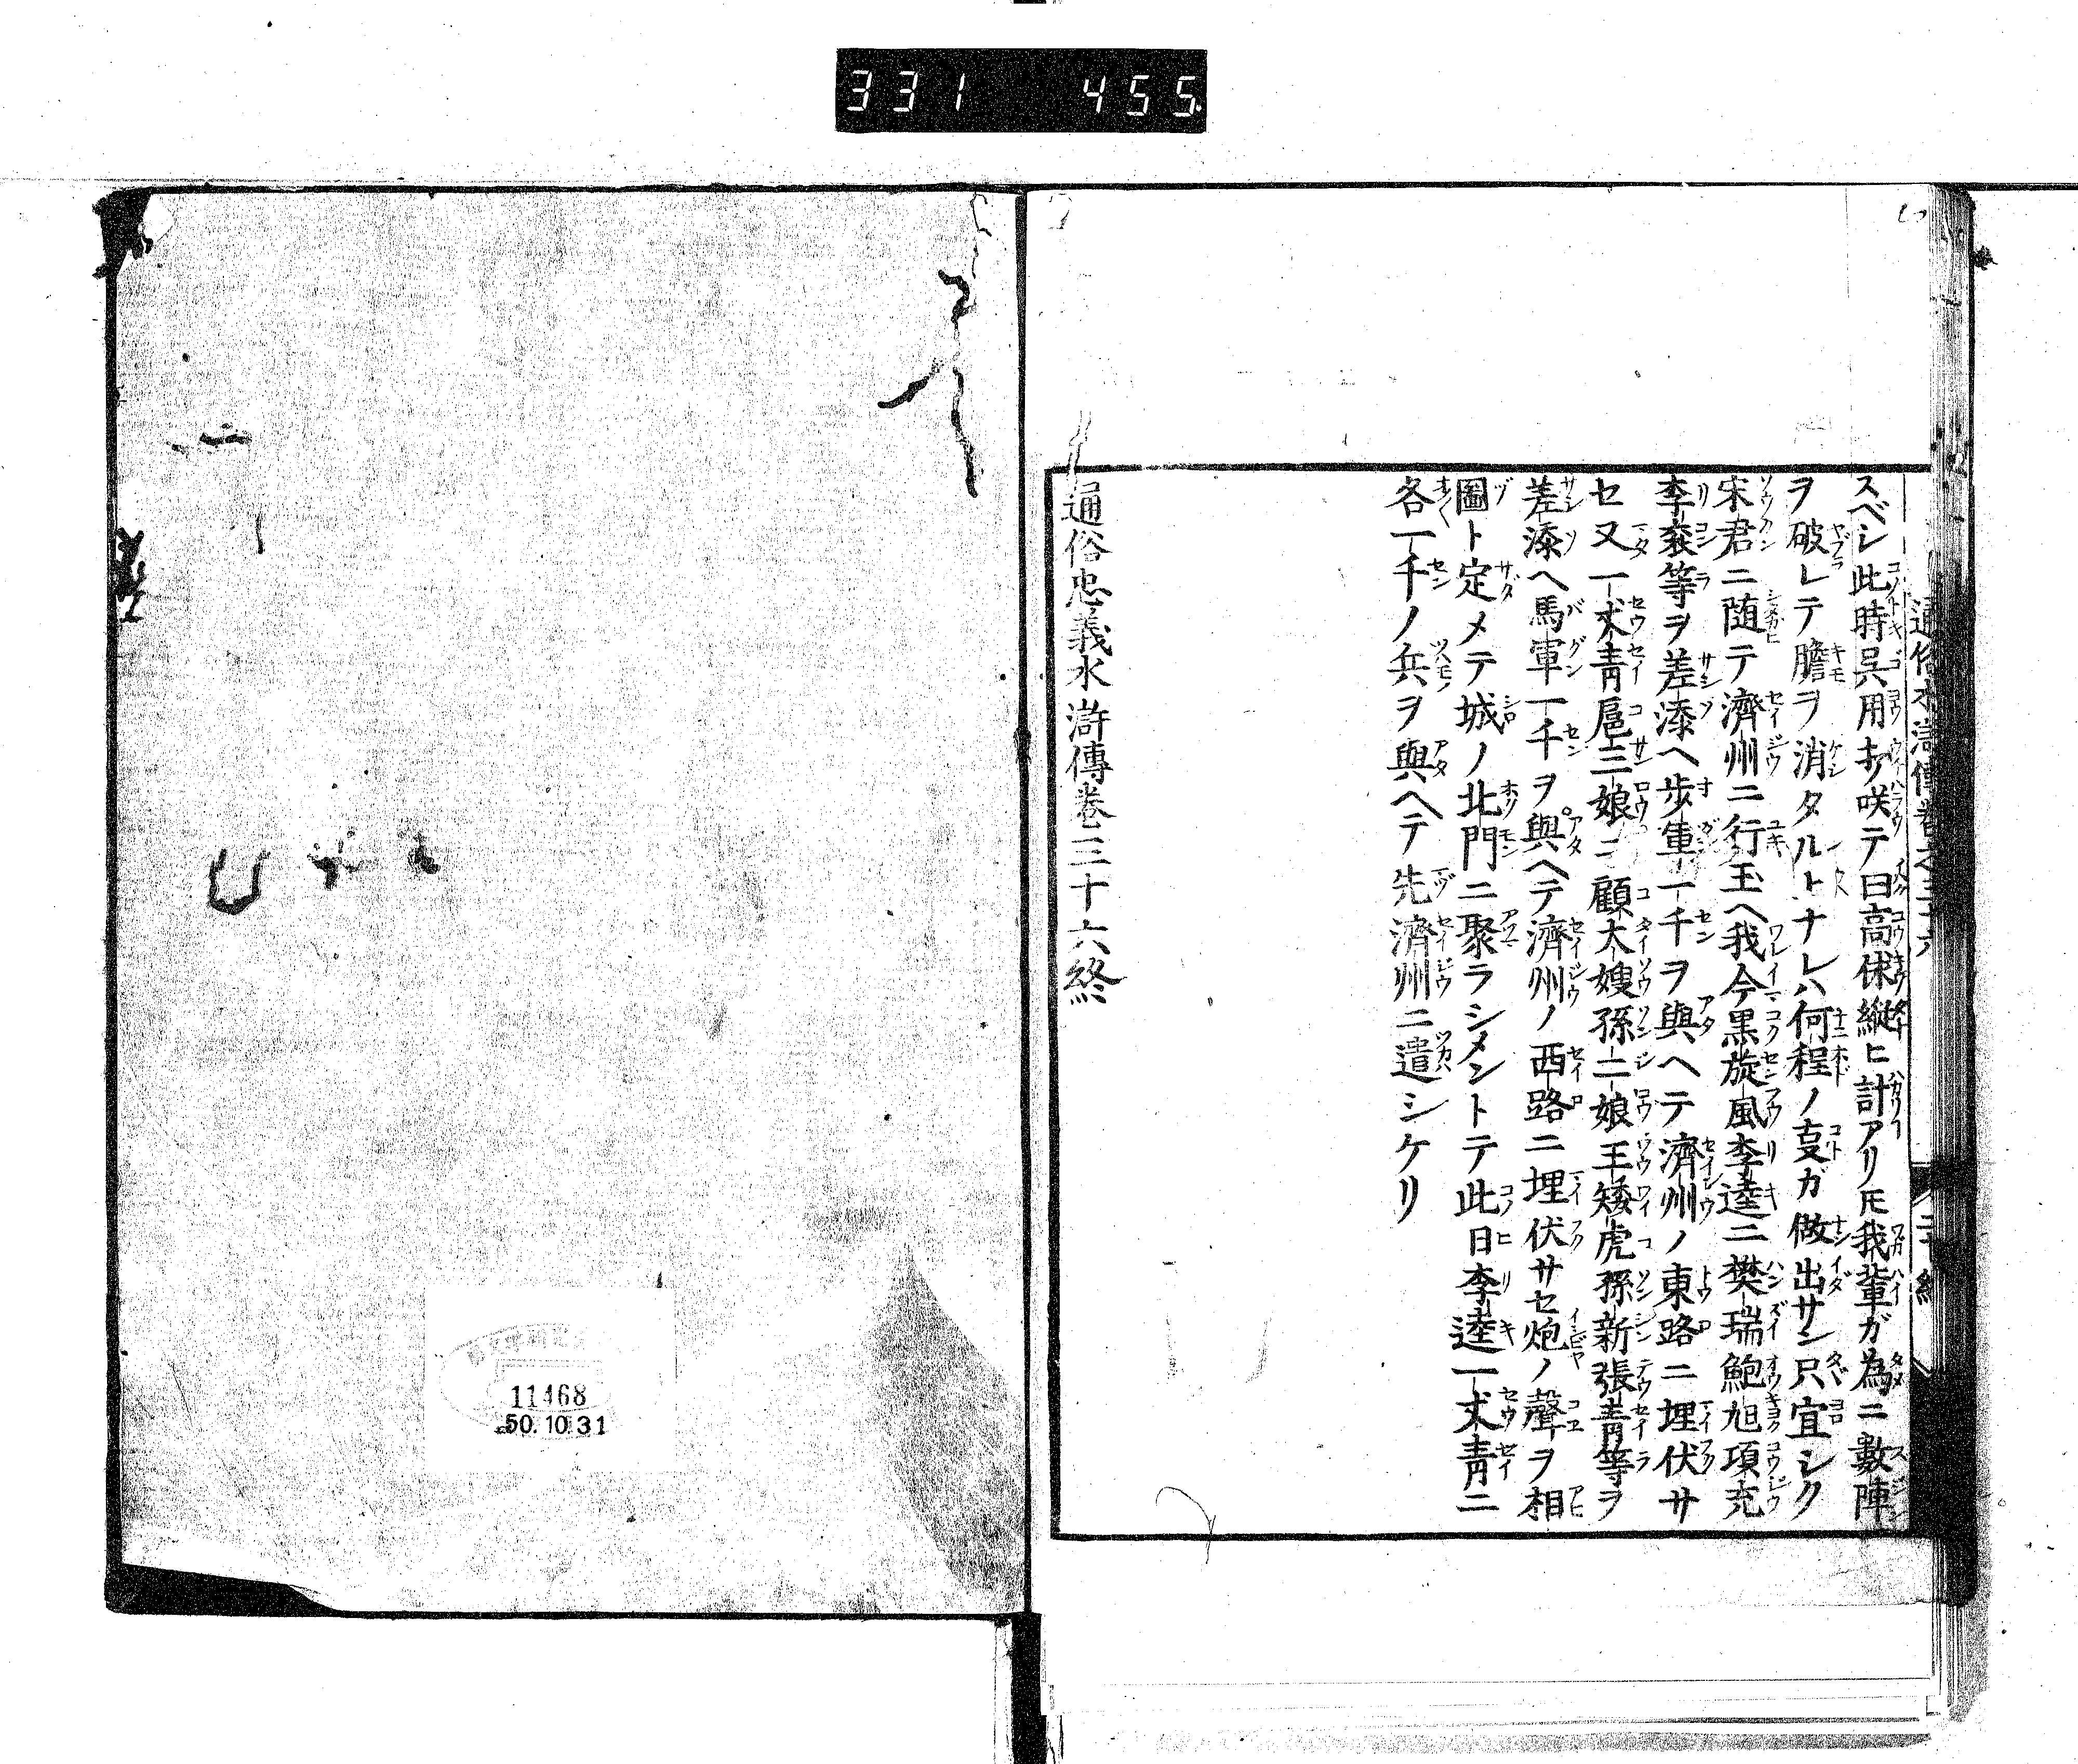 331 455
通俗水滸傳卷之三十六
スベシ此時呉用打咲テ曰高俅縱ヒ計アリ𪜈我輩ガ為ニ數陣
ヲ破レテ膽ヲ消タルトナレハ何程ノ㕝カ做出サン只宜シク
宋君ニ随テ濟州ニ行玉ヘ我今黒旋風李逵ニ樊瑞鮑旭項充
李衮等ヲ差添ヘ歩軍一千ヲ與ヘテ濟州ノ東路ニ埋伏サ
セ又一丈青扈三娘ニ顧大嫂孫二娘王矮虎孫新張青等ヲ
差添ヘ馬軍一千ヲ與ヘテ濟州ノ西路ニ埋伏サセ炮ノ聲ヲ相
圖ト定メテ城ノ北門ニ聚ラシメントテ此日李逵一丈青ニ
各一千ノ兵ヲ與ヘテ先濟州ニ遣シケリ
通俗忠義水滸傳卷三十六終
11468
50.10.31